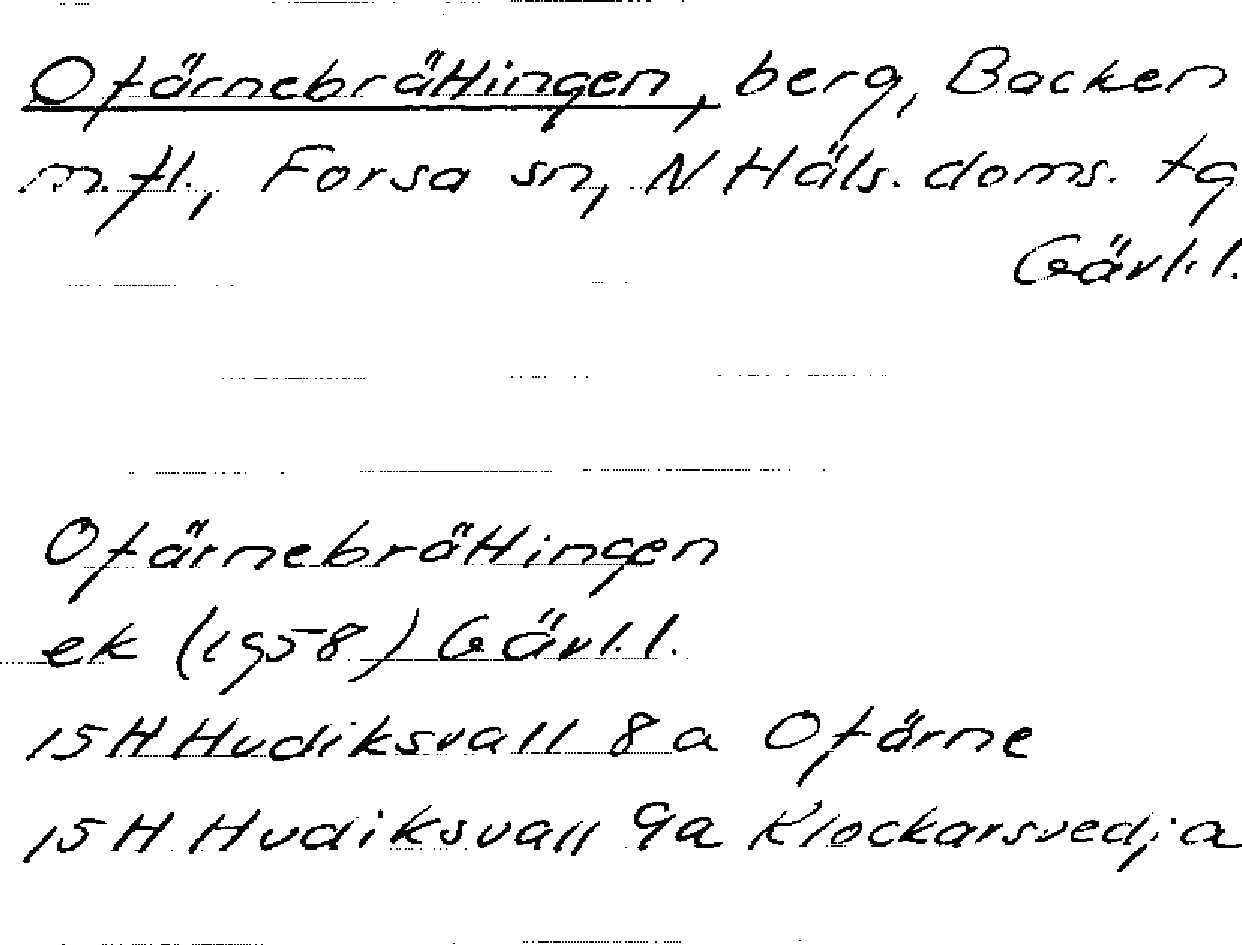 Ofärnebrättingen, berg, Backen
m.fl., Forsa sn, N Häls. doms. tg
Gävl.l.
Ofärnebrättingen
ek (1958) Gävl.l.
15H Hudiksvall 8a Ofärne
15H Hudiksvall 9a Klockarsvedja